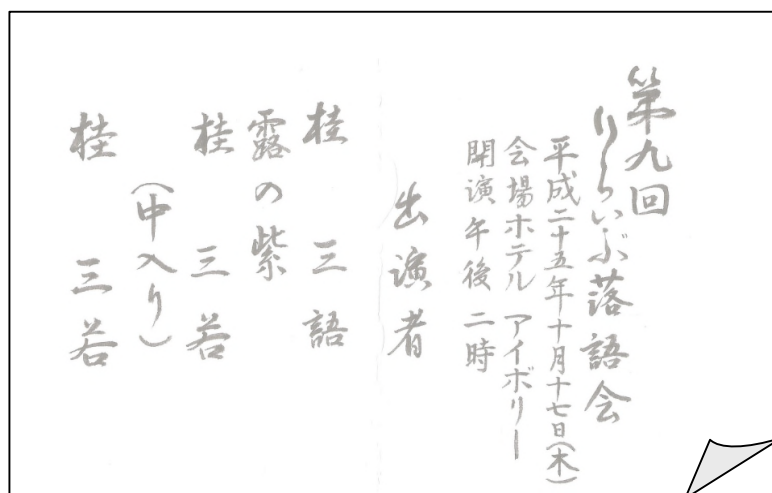 第九回
りらいぶ落語会
平成二十五年十月十七日(木)
会場ホテル アイボリー
開演午後 二時
出演者
桂 三語
露の紫
桂 三若
(中入り)
桂 三若